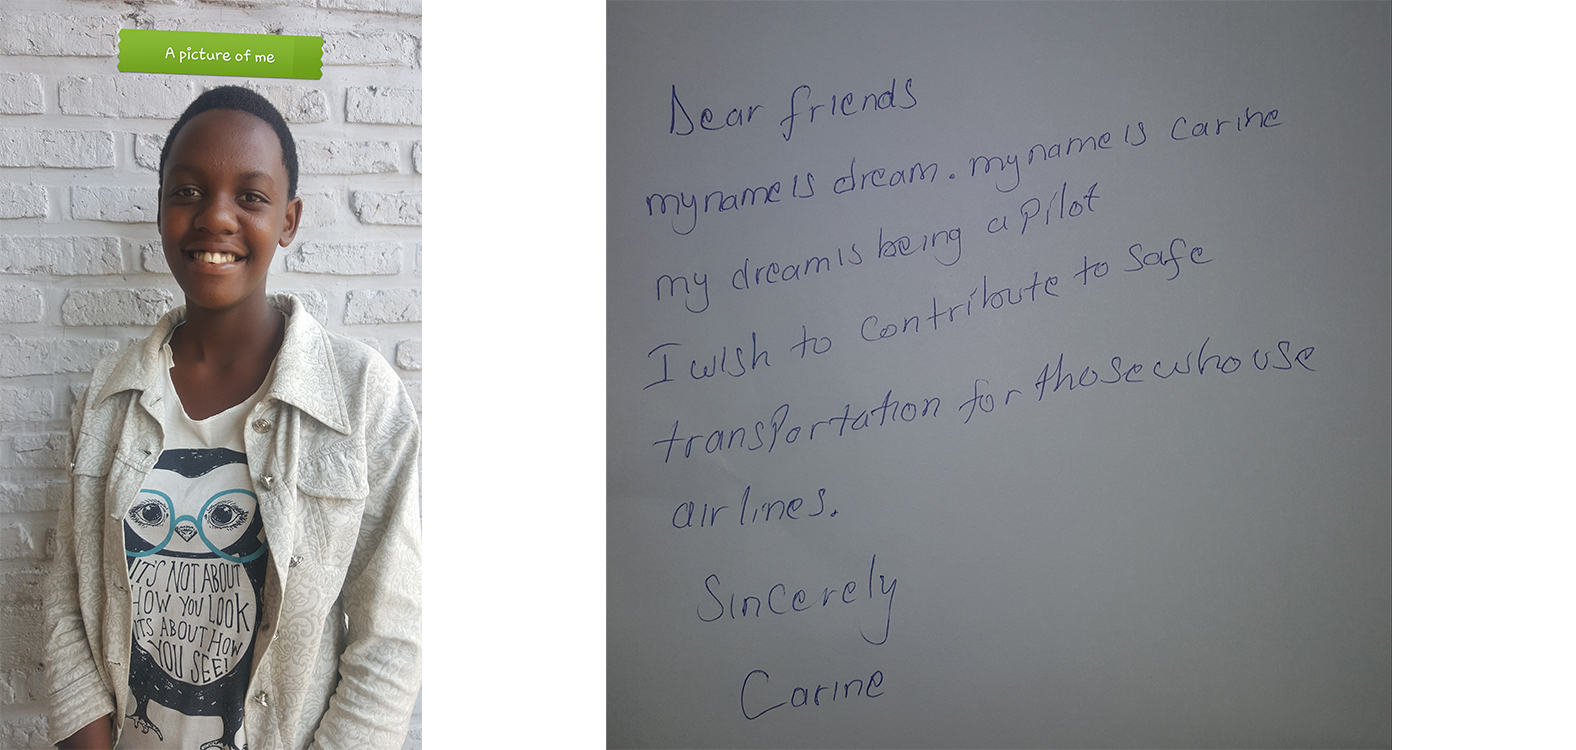 A picture of me
IT'S NOT ABOUT
HOW YOU LOOK
ITS ABOUT HOW
YOU SEE!
Dear friends
my name is dream. my name is carine
my dream is being a pilot
I wish to contribute to safe
transportation for those who use
airlines.
Sincerely
Carine